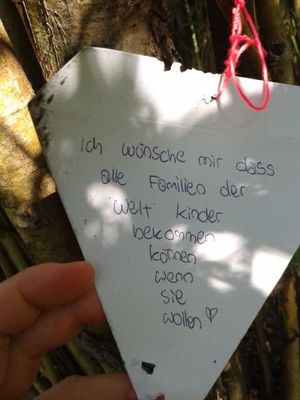 Ich wünsche mir dass
alle Familien der
Welt kinder
bekommen
können
wenn
sie
wollen ♡